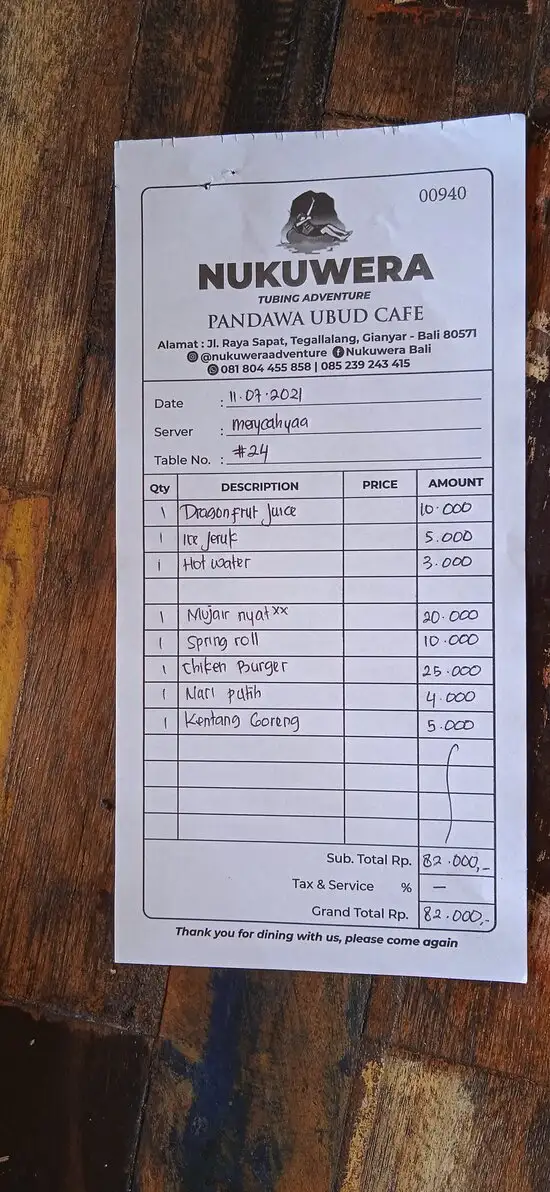 00940
NUKUWERA
TUBING ADVENTURE
PANDAWA UBUD CAFE
Alamat : Jl. Raya Sapat, Tegallalang, Gianyar - Bali 80571
@nukuweraadventure Nukuwera Bali
081 804 455 858 | 085 239 243 415
Date : 11.07.2021
Server : meycahyaa
Table No. : #24
Qty DESCRIPTION PRICE AMOUNT
1 Dragonfruit Juice 10.000
1 Ice Jeruk 5.000
1 Hot water 3.000
1 Mujair nyat xx 20.000
1 Spring roll 10.000
1 Chiken Burger 25.000
1 Nasi putih 4.000
1 Kentang Goreng 5.000
Sub. Total Rp. 82.000,-
Tax & Service % —
Grand Total Rp. 82.000,-
Thank you for dining with us, please come again